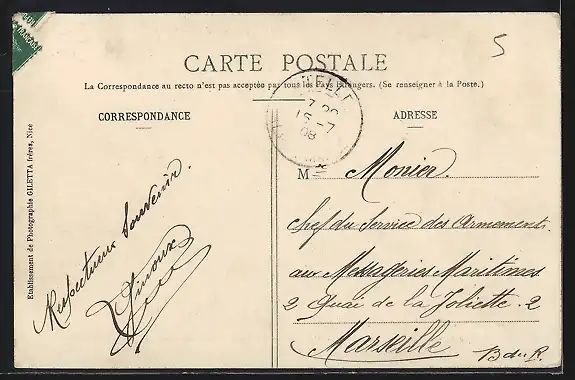 5
CARTE POSTALE
La Correspondance au recto n'est pas acceptée par tous les Pays Etrangers. (Se renseigner à la Poste.)
CORRESPONDANCE
ADRESSE
7 30
16 - 7
08
Etablissement de Photographie GILETTA frères, Nice
Respectueux Souvenir.
M Monier.
chef du Service des Armements.
aux Messageries Maritimes
2 Quai de la Joliette. 2
Marseille
B du R.